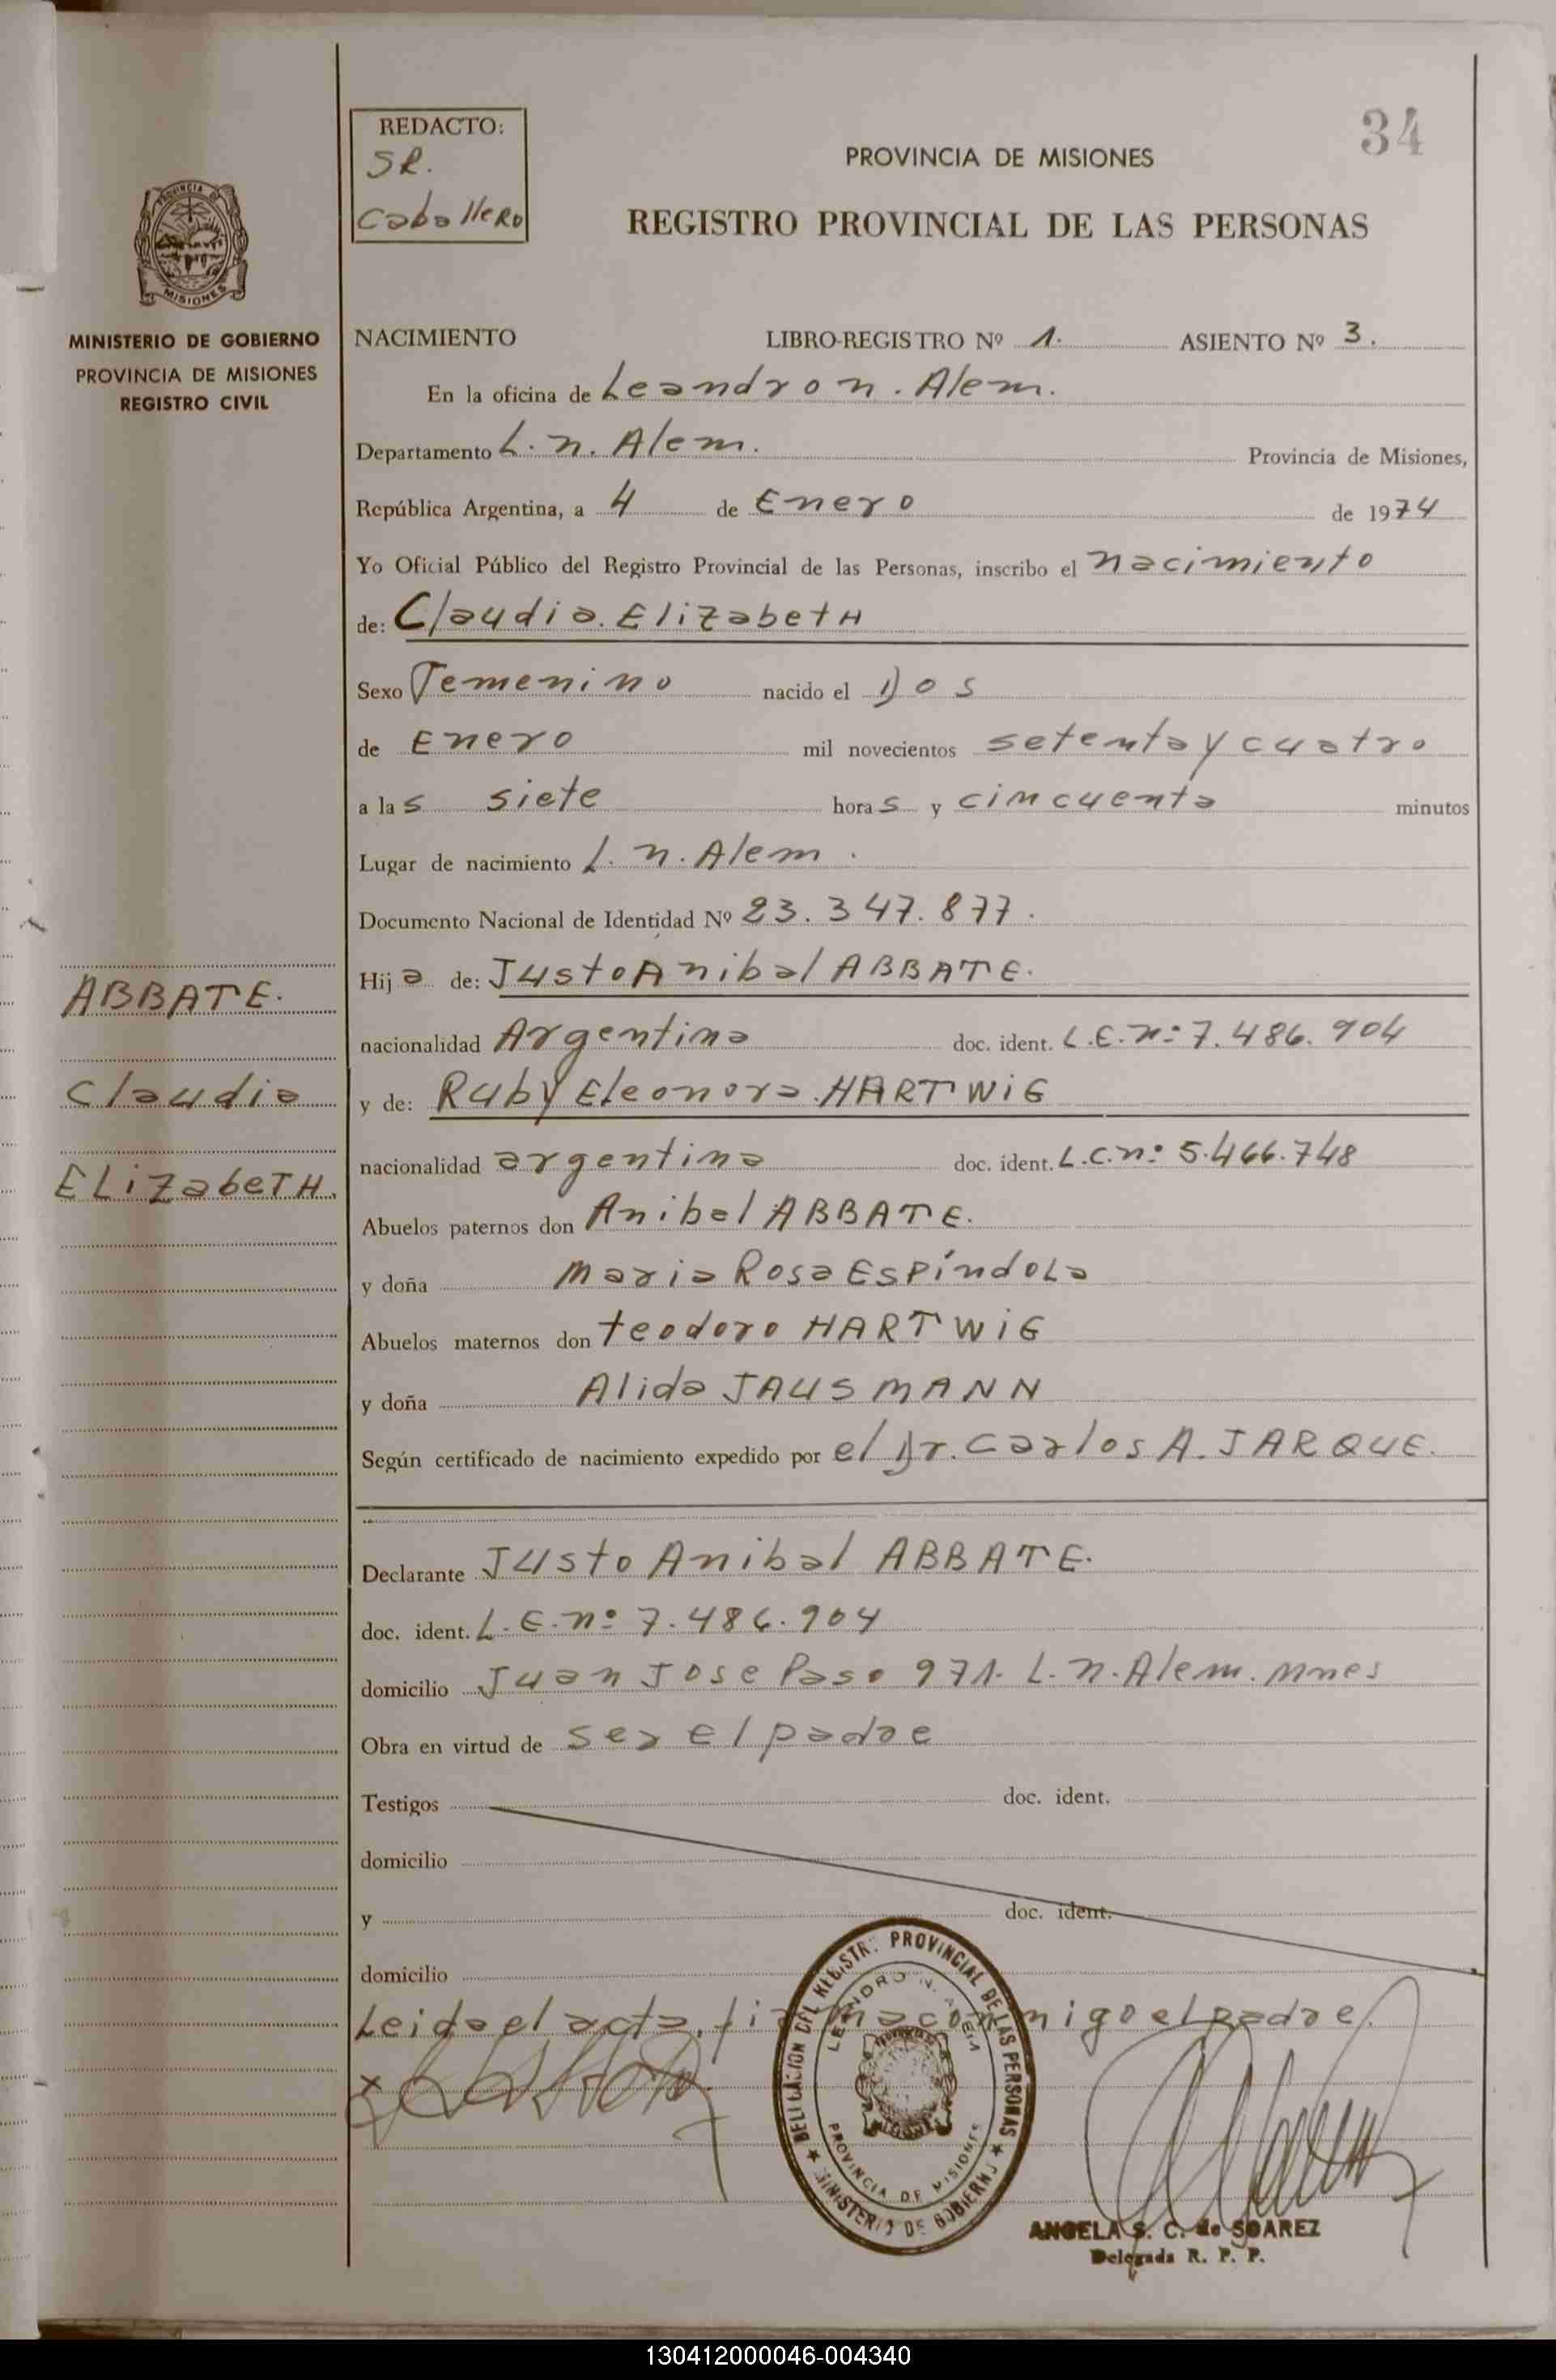 34
REDACTO:
SR.
Caballero
PROVINCIA DE MISIONES
REGISTRO PROVINCIAL DE LAS PERSONAS
MISIONES
MINISTERIO DE GOBIERNO
PROVINCIA DE MISIONES
REGISTRO CIVIL
NACIMIENTO LIBRO-REGISTRO Nº 1. ASIENTO Nº 3.
En la oficina de Leandro n. Alem.
Departamento L. n. Alem. Provincia de Misiones,
República Argentina, a 4 de Enero de 1974
Yo Oficial Público del Registro Provincial de las Personas, inscribo el nacimiento
de: Claudia Elizabeth
Sexo Femenino nacido el Dos
de Enero mil novecientos setenta y cuatro
a las siete horas y cincuenta minutos
Lugar de nacimiento L. n. Alem.
Documento Nacional de Identidad Nº 23.347.877.
Hija de: Justo Anibal ABBATE.
nacionalidad Argentina doc. ident. L.E. nº 7.486.904
y de: Ruby Eleonora HARTWiG
nacionalidad argentina doc. ident. L.C. nº 5.466.748
Abuelos paternos don Anibal ABBATE.
y doña Maria Rosa Espíndola
Abuelos maternos don teodoro HARTWiG
y doña Alida JAUSMANN
Según certificado de nacimiento expedido por el Dr. Carlos A. JARQUE.
ABBATE.
Claudia
ELizabeTH.
Declarante Justo Anibal ABBATE.
doc. ident. L.E. nº 7.486.904
domicilio Juan Jose Paso 971. L. n. Alem. Mnes
Obra en virtud de ser el padre
Testigos doc. ident.
domicilio
y doc. ident.
domicilio
Leida el acta, firma conmigo el padre.
DELEGACION DEL REGISTRO PROVINCIAL DE LAS PERSONAS
LEANDRO N. ALEM
PROVINCIA DE MISIONES
MINISTERIO DE GOBIERNO
ANGELA S. C. de SOAREZ
Delegada R. P. P.
130412000046-004340